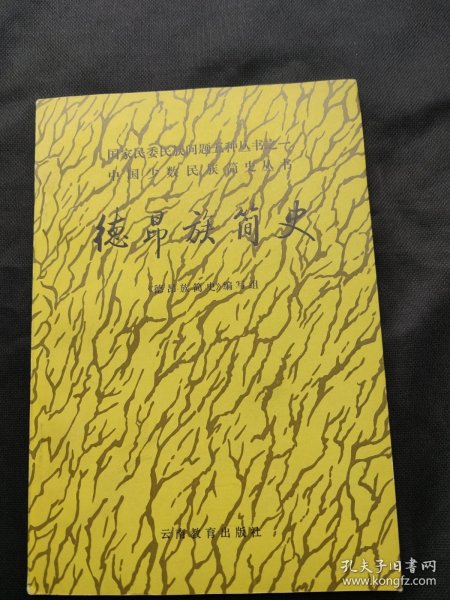 国家民委民族问题五种丛书之一
中国少数民族简史丛书
德昂族简史
《德昂族简史》编写组
云南教育出版社
孔夫子旧书网
www.kongfz.com